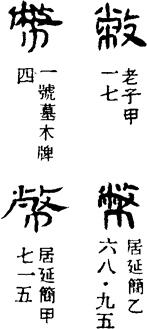 老子甲
一七
一號墓木牌
四
居延簡乙
六八·九五
居延簡甲
七一五